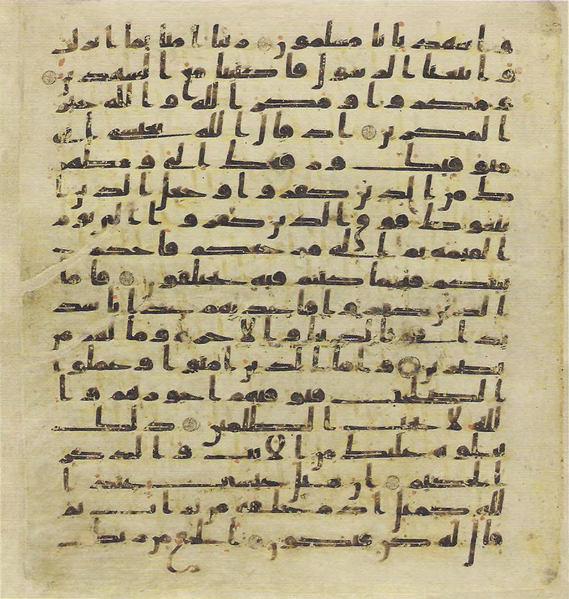 و اشهد بانا مسلمون ربنا امنا بما انزلت
و اتبعنا الرسول فاكتبنا مع الشهدين
و مكروا و مكر الله و الله خير
المكرين اذ قال الله يعيسى اني
متوفيك و رافعك الي و مطهر
ك من الذين كفروا و جاعل الذين ا
تبعوك فوق الذين كفروا الى يوم
القيمة ثم الي مرجعكم فاحكم
بينكم فيما كنتم فيه تختلفون فاما
الذين كفروا فاعذبهم عذابا شد
يدا في الدنيا و الاخرة و ما لهم من
نصرين و اما الذين امنوا و عملوا
الصلحت فيوفيهم اجورهم و ا
لله لا يحب الظلمين ذلك
نتلوه عليك من الايت و الذكر
الحكيم ان مثل عيسى عند ا
لله كمثل ادم خلقه من تراب ثم
قال له كن فيكون الحق من ربك